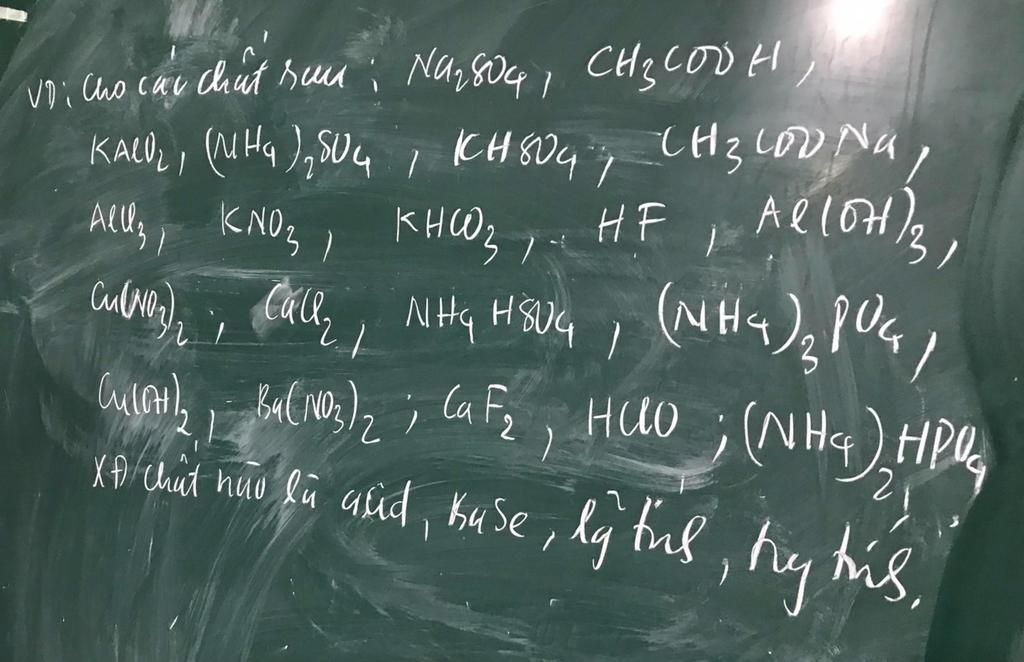 VD: Cho các chất sau: Na₂SO₄, CH₃COOH,
KAlO₂, (NH₄)₂SO₄, KHSO₄, CH₃COONa,
AlCl₃, KNO₃, KHCO₃, HF, Al(OH)₃,
Cu(NO₃)₂; CaCl₂, NH₄HSO₄, (NH₄)₃PO₄,
Cu(OH)₂, Ba(NO₃)₂; CaF₂, HClO; (NH₄)₂HPO₄
XĐ chất nào là acid, base, lg tính, trg tính.